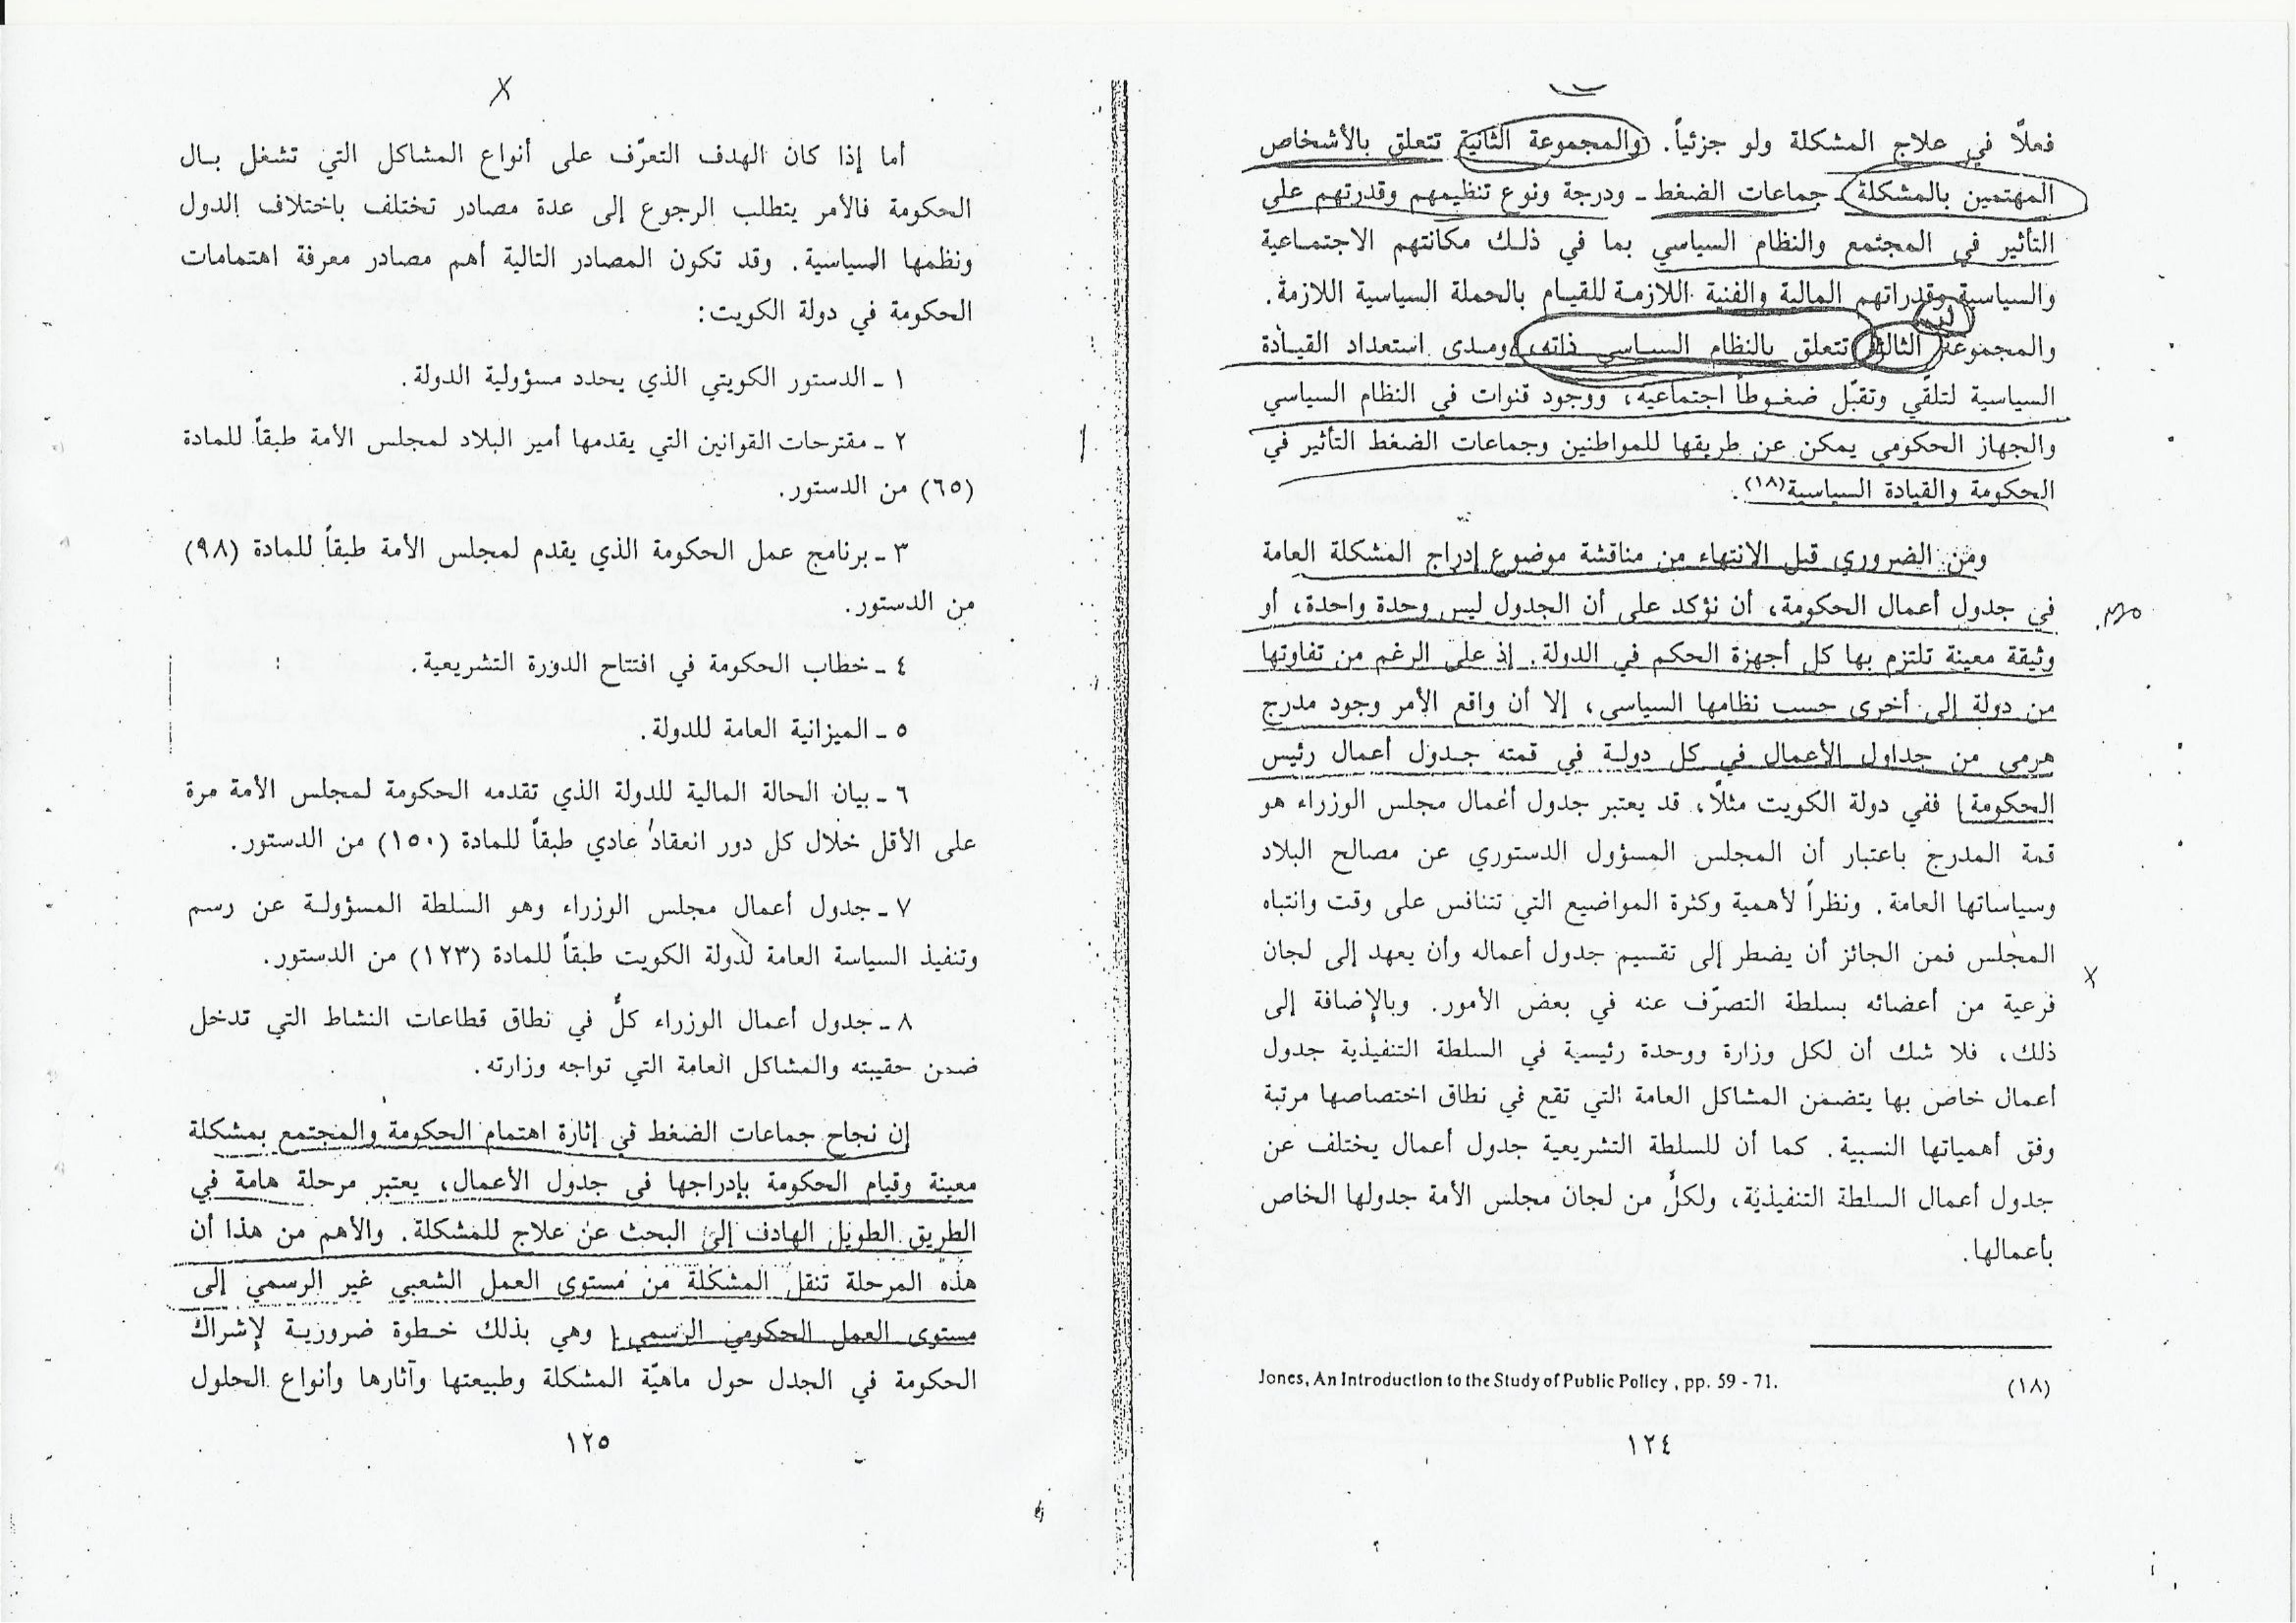 فعلاً في علاج المشكلة ولو جزئياً. والمجموعة الثانية تتعلق بالأشخاص
المهتمين بالمشكلة ـ جماعات الضغط ـ ودرجة ونوع تنظيمهم وقدرتهم على
التأثير في المجتمع والنظام السياسي بما في ذلك مكانتهم الاجتماعية
والسياسية وقدراتهم المالية والفنية اللازمة للقيام بالحملة السياسية اللازمة.
والمجموعة الثالثة تتعلق بالنظام السياسي ذاته ومدى استعداد القيادة
السياسية لتلقّي وتقبّل ضغوطاً اجتماعية، ووجود قنوات في النظام السياسي
والجهاز الحكومي يمكن عن طريقها للمواطنين وجماعات الضغط التأثير في
الحكومة والقيادة السياسية(١٨).
ومن الضروري قبل الانتهاء من مناقشة موضوع إدراج المشكلة العامة
في جدول أعمال الحكومة، أن نؤكد على أن الجدول ليس وحدة واحدة، أو
وثيقة معينة تلتزم بها كل أجهزة الحكم في الدولة. إذ على الرغم من تفاوتها
من دولة إلى أخرى حسب نظامها السياسي، إلا أن واقع الأمر وجود مدرج
هرمي من جداول الأعمال في كل دولة في قمته جدول أعمال رئيس
الحكومة) ففي دولة الكويت مثلاً، قد يعتبر جدول أعمال مجلس الوزراء هو
قمة المدرج باعتبار أن المجلس المسؤول الدستوري عن مصالح البلاد
وسياساتها العامة. ونظراً لأهمية وكثرة المواضيع التي تتنافس على وقت وانتباه
المجلس فمن الجائز أن يضطر إلى تقسيم جدول أعماله وأن يعهد إلى لجان
فرعية من أعضائه بسلطة التصرّف عنه في بعض الأمور. وبالإضافة إلى
ذلك، فلا شك أن لكل وزارة ووحدة رئيسية في السلطة التنفيذية جدول
أعمال خاص بها يتضمن المشاكل العامة التي تقع في نطاق اختصاصها مرتبة
وفق أهمياتها النسبية. كما أن للسلطة التشريعية جدول أعمال يختلف عن
جدول أعمال السلطة التنفيذية، ولكلٍّ من لجان مجلس الأمة جدولها الخاص
بأعمالها.
(١٨) Jones, An Introduction to the Study of Public Policy, pp. 59 - 71.
١٢٤
أما إذا كان الهدف التعرّف على أنواع المشاكل التي تشغل بال
الحكومة فالأمر يتطلب الرجوع إلى عدة مصادر تختلف باختلاف الدول
ونظمها السياسية. وقد تكون المصادر التالية أهم مصادر معرفة اهتمامات
الحكومة في دولة الكويت:
١ ـ الدستور الكويتي الذي يحدد مسؤولية الدولة.
٢ ـ مقترحات القوانين التي يقدمها أمير البلاد لمجلس الأمة طبقاً للمادة
(٦٥) من الدستور.
٣ ـ برنامج عمل الحكومة الذي يقدم لمجلس الأمة طبقاً للمادة (٩٨)
من الدستور.
٤ ـ خطاب الحكومة في افتتاح الدورة التشريعية.
٥ ـ الميزانية العامة للدولة.
٦ ـ بيان الحالة المالية للدولة الذي تقدمه الحكومة لمجلس الأمة مرة
على الأقل خلال كل دور انعقاد عادي طبقاً للمادة (١٥٠) من الدستور.
٧ ـ جدول أعمال مجلس الوزراء وهو السلطة المسؤولة عن رسم
وتنفيذ السياسة العامة لدولة الكويت طبقاً للمادة (١٢٣) من الدستور.
٨ ـ جدول أعمال الوزراء كلٌّ في نطاق قطاعات النشاط التي تدخل
ضمن حقيبته والمشاكل العامة التي تواجه وزارته.
إن نجاح جماعات الضغط في إثارة اهتمام الحكومة والمجتمع بمشكلة
معينة وقيام الحكومة بإدراجها في جدول الأعمال، يعتبر مرحلة هامة في
الطريق الطويل الهادف إلى البحث عن علاج للمشكلة. والأهم من هذا أن
هذه المرحلة تنقل المشكلة من مستوى العمل الشعبي غير الرسمي إلى
مستوى العمل الحكومي الرسمي) وهي بذلك خطوة ضرورية لإشراك
الحكومة في الجدل حول ماهيّة المشكلة وطبيعتها وآثارها وأنواع الحلول
١٢٥